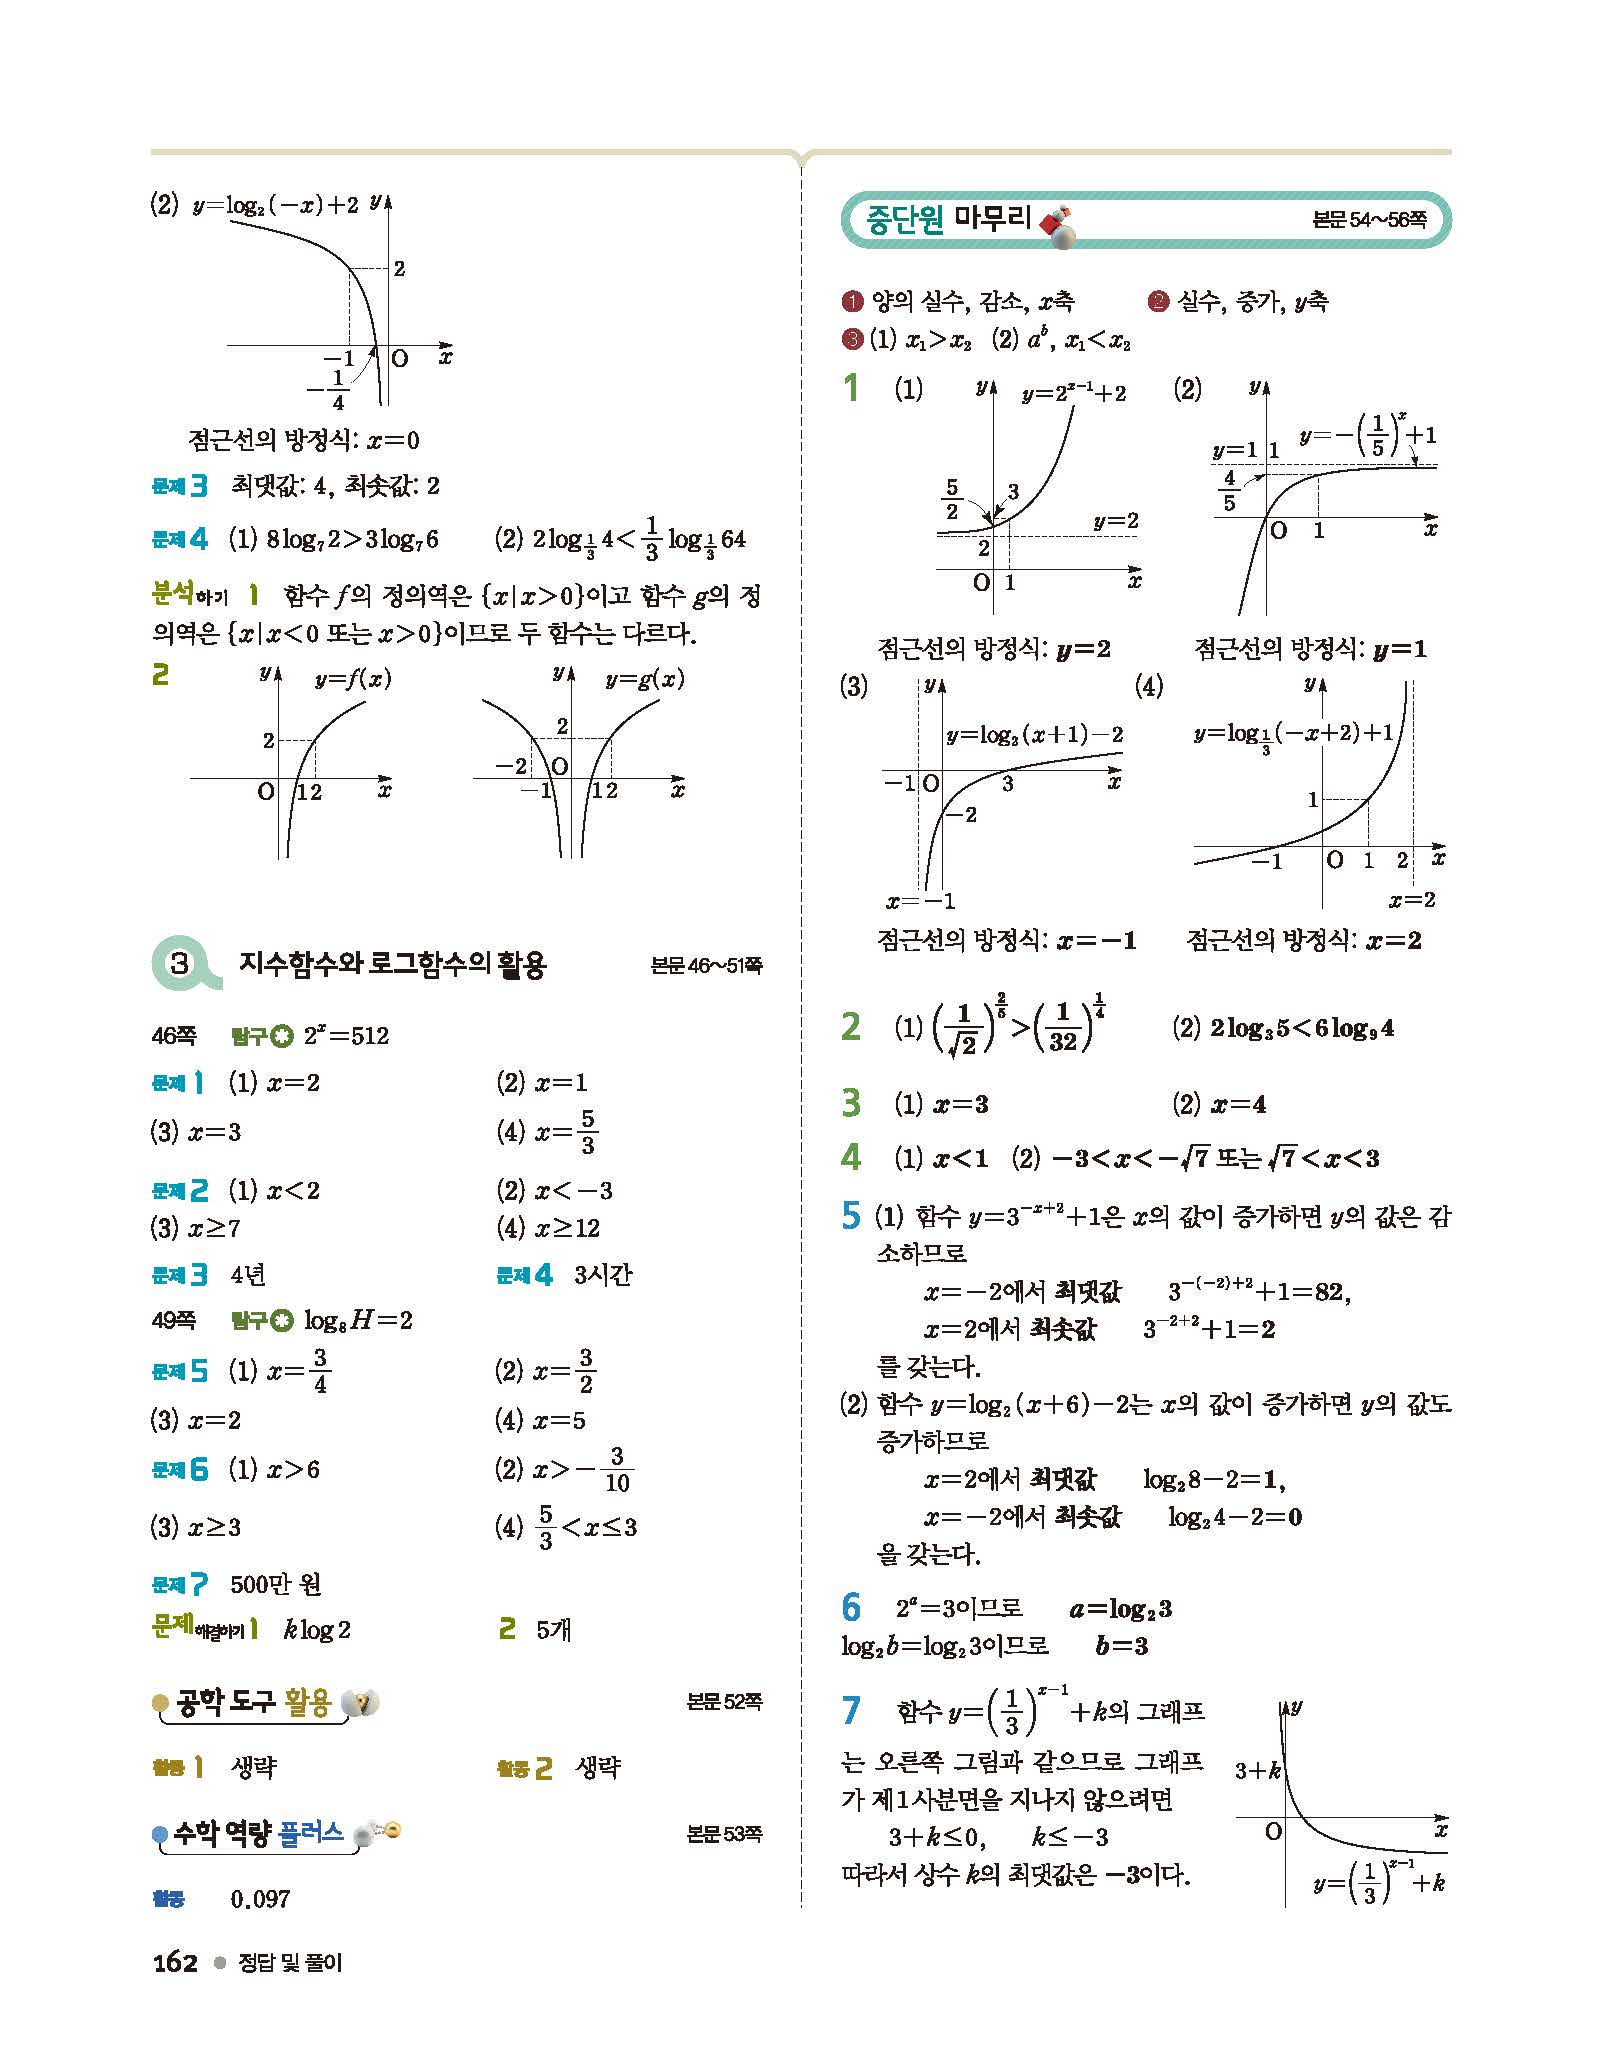 (2) y=log₂(-x)+2 y
2
-1 O x
-1/4
점근선의 방정식: x=0
문제 3 최댓값: 4, 최솟값: 2
문제 4 (1) 8log₇2>3log₇6 (2) 2log_{1/3}4<1/3 log_{1/3}64
분석하기 1 함수 f의 정의역은 {x|x>0}이고 함수 g의 정
의역은 {x|x<0 또는 x>0}이므로 두 함수는 다르다.
2 y y=f(x) y y=g(x)
2 2
-2 O
O 1 2 x -1 1 2 x
3 지수함수와 로그함수의 활용 본문 46~51쪽
46쪽 탐구 2^x=512
문제 1 (1) x=2 (2) x=1
(3) x=3 (4) x=5/3
문제 2 (1) x<2 (2) x<-3
(3) x≥7 (4) x≥12
문제 3 4년 문제 4 3시간
49쪽 탐구 log₈H=2
문제 5 (1) x=3/4 (2) x=3/2
(3) x=2 (4) x=5
문제 6 (1) x>6 (2) x>-3/10
(3) x≥3 (4) 5/3<x≤3
문제 7 500만 원
문제 해결하기 1 k log 2 2 5개
공학 도구 활용 본문 52쪽
활동 1 생략 활동 2 생략
수학 역량 플러스 본문 53쪽
활동 0.097
162 정답 및 풀이
중단원 마무리 본문 54~56쪽
1 양의 실수, 감소, x축 2 실수, 증가, y축
3 (1) x₁>x₂ (2) a^b, x₁<x₂
1 (1) y y=2^{x-1}+2 (2) y
y=-(1/5)^x+1
y=1 1
5/2 3 4/5
y=2
2 O 1 x
O 1 x
점근선의 방정식: y=2 점근선의 방정식: y=1
(3) y (4) y
y=log₂(x+1)-2 y=log_{1/3}(-x+2)+1
-1 O 3 x 1
-2
-1 O 1 2 x
x=-1 x=2
점근선의 방정식: x=-1 점근선의 방정식: x=2
2 (1) (1/√2)^{2/5}>(1/32)^{1/4} (2) 2log₃5<6log₉4
3 (1) x=3 (2) x=4
4 (1) x<1 (2) -3<x<-√7 또는 √7<x<3
5 (1) 함수 y=3^{-x+2}+1은 x의 값이 증가하면 y의 값은 감
소하므로
x=-2에서 최댓값 3^{-(-2)+2}+1=82,
x=2에서 최솟값 3^{-2+2}+1=2
를 갖는다.
(2) 함수 y=log₂(x+6)-2는 x의 값이 증가하면 y의 값도
증가하므로
x=2에서 최댓값 log₂8-2=1,
x=-2에서 최솟값 log₂4-2=0
을 갖는다.
6 2^a=3이므로 a=log₂3
log₂b=log₂3이므로 b=3
7 함수 y=(1/3)^{x-1}+k의 그래프
는 오른쪽 그림과 같으므로 그래프
가 제1사분면을 지나지 않으려면
3+k≤0, k≤-3
따라서 상수 k의 최댓값은 -3이다.
y
3+k
O x
y=(1/3)^{x-1}+k